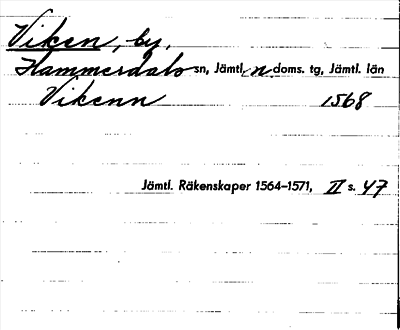 Viken, by,
Hammerdals sn, Jämtl. n doms. tg, Jämtl. län
Vikenn 1568
Jämtl. Räkenskaper 1564–1571, II s. 47